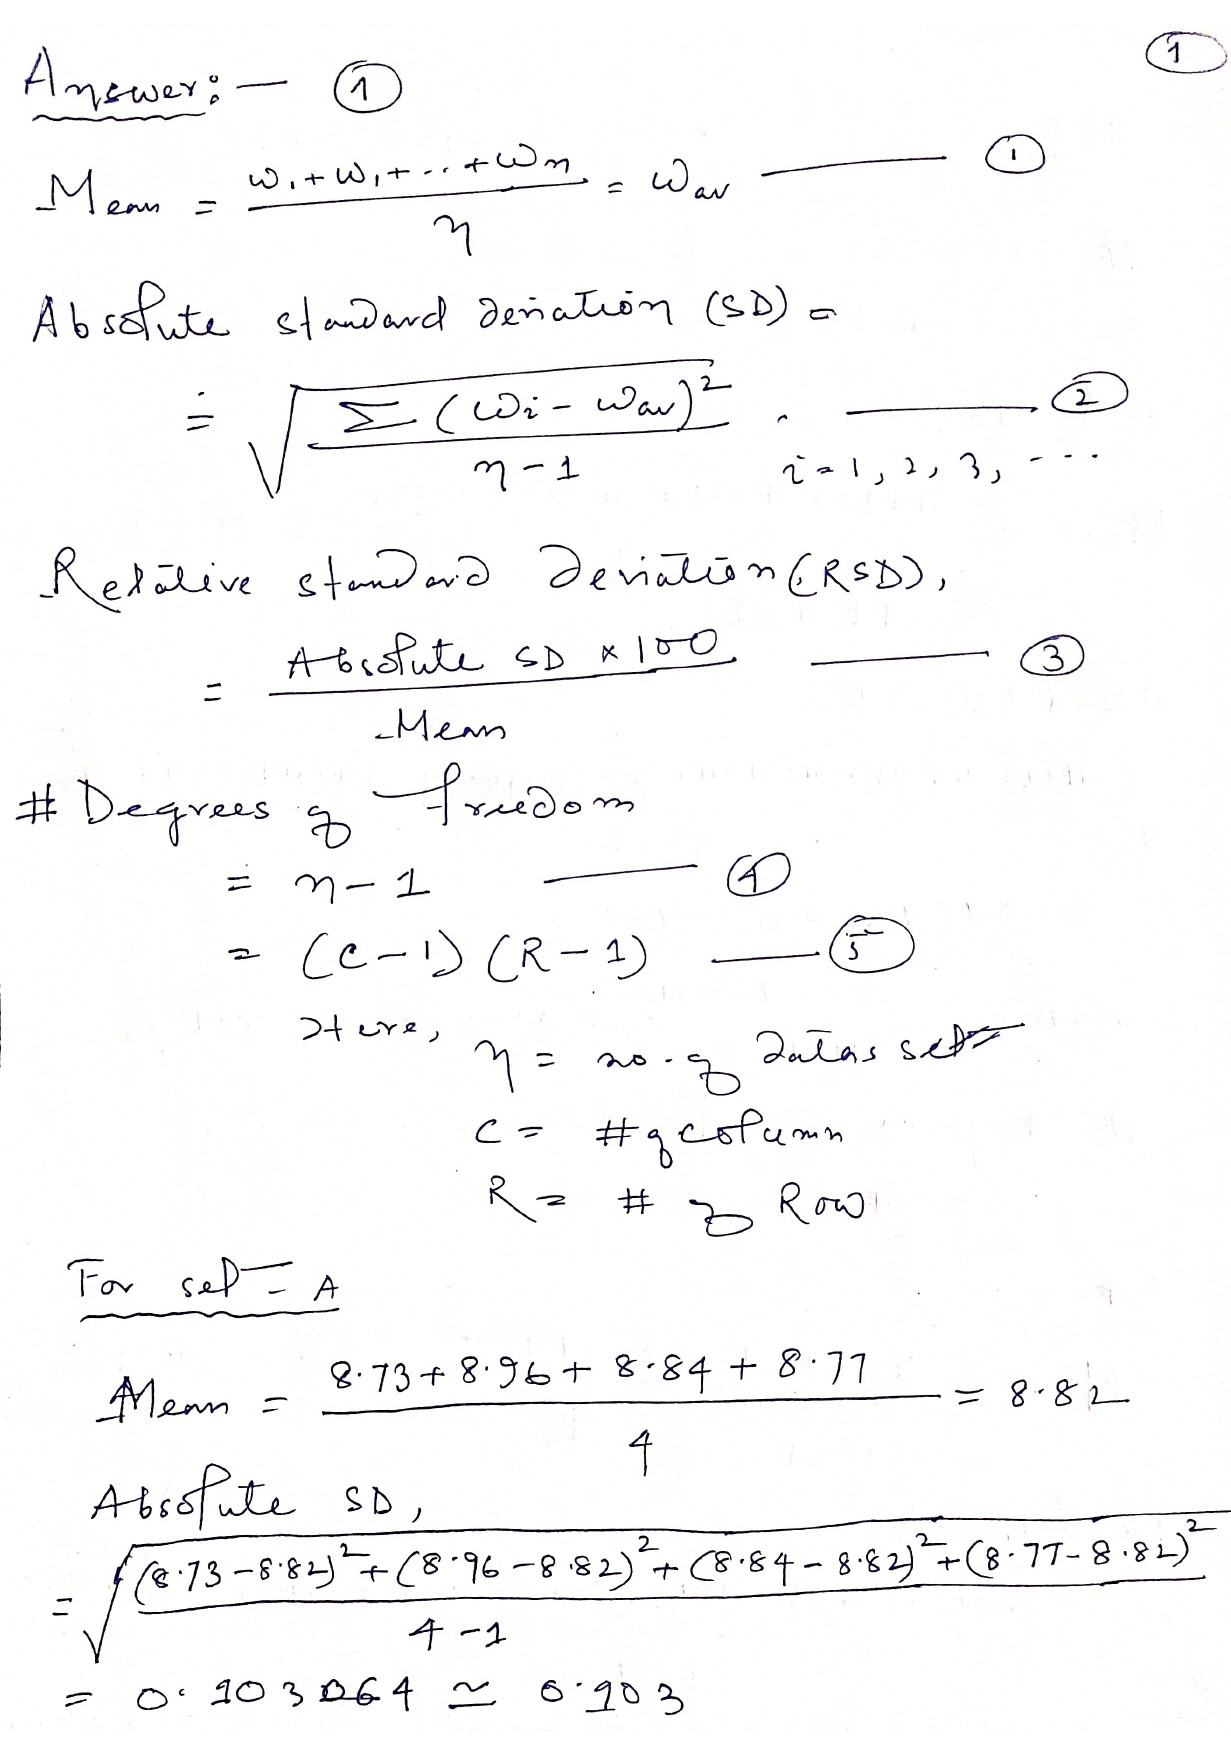 1
Answer:— 1
Mean = (w₁+w₁+...+wn)/n = Wav —— 1
Absolute standard deviation (SD) =
= √(Σ(wi - wav)²/(n-1)) . —— 2
i=1, 2, 3, ---
Relative standard deviation (RSD),
= (Absolute SD × 100)/Mean —— 3
# Degrees of freedom
= n-1 —— 4
= (C-1) (R-1) —— 5
Here,
n = no. of datas set
C = # of column
R = # of Row
For set - A
Mean = (8.73+8.96+8.84+8.77)/4 = 8.82
Absolute SD,
= √(((8.73-8.82)²+(8.96-8.82)²+(8.84-8.82)²+(8.77-8.82)²)/(4-1))
= 0.103064 ≃ 0.103